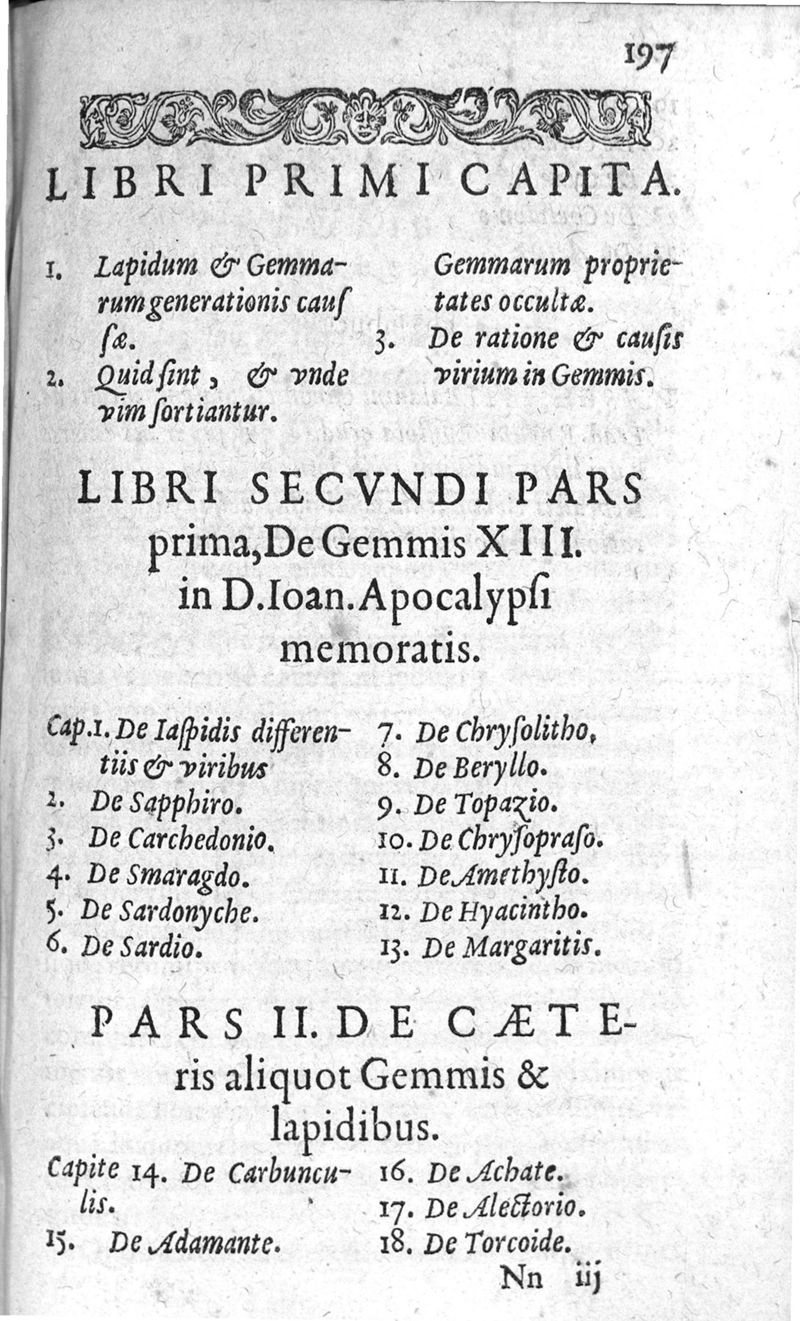 197
LIBRI PRIMI CAPITA.
1. Lapidum & Gemma-
rum generationis cauſ
ſæ.
2. Quid ſint, & vnde
vim ſortiantur.
Gemmarum proprie-
tates occultæ.
3. De ratione & cauſis
virium in Gemmis.
LIBRI SECVNDI PARS
prima, De Gemmis XIII.
in D. Ioan. Apocalypſi
memoratis.
Cap. 1. De Iaſpidis differen-
tiis & viribus
2. De Sapphiro.
3. De Carchedonio.
4. De Smaragdo.
5. De Sardonyche.
6. De Sardio.
7. De Chryſolitho,
8. De Beryllo.
9. De Topazio.
10. De Chryſopraſo.
11. De Amethyſto.
12. De Hyacintho.
13. De Margaritis.
PARS II. DE CÆTE-
ris aliquot Gemmis &
lapidibus.
Capite 14. De Carbuncu-
lis.
15. De Adamante.
16. De Achate.
17. De Alectorio.
18. De Torcoide.
Nn iij